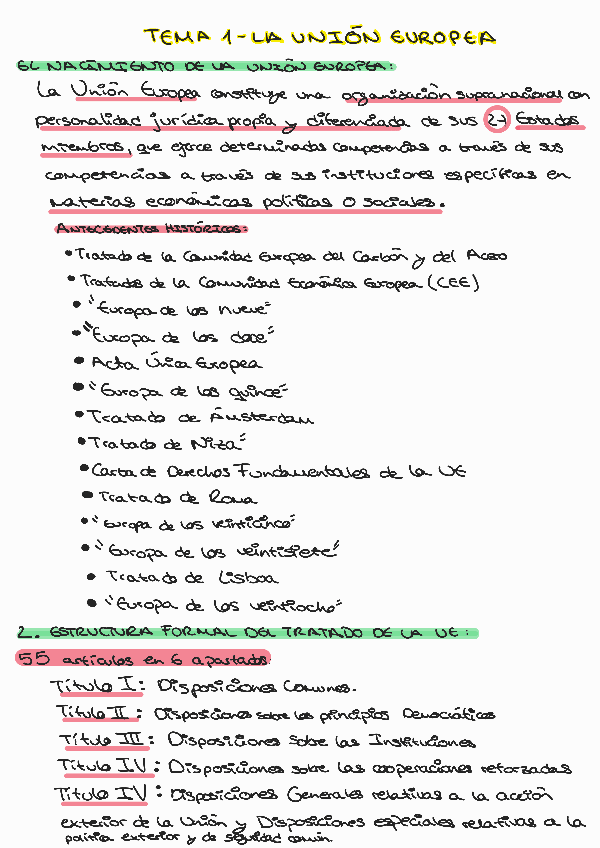 TEMA 1 - LA UNIÓN EUROPEA
EL NACIMIENTO DE LA UNIÓN EUROPEA:
La Unión Europea constituye una organización supranacional con
personalidad jurídica propia y diferenciada de sus 27 Estados
miembros, que ejerce determinadas competencias a través de sus
competencias a través de sus instituciones específicas en
materias económicas políticas o sociales.
ANTECEDENTES HISTÓRICOS:
• Tratado de la Comunidad Europea del Carbón y del Acero
• Tratado de la Comunidad Económica Europea (CEE)
• "Europa de los nueve"
• "Europa de los doce"
• Acta Única Europea
• "Europa de los quince"
• Tratado de Ámsterdam
• Tratado de Niza"
• Carta de Derechos Fundamentales de la UE
• Tratado de Roma
• "Europa de los veinticinco"
• "Europa de los veintisiete"
• Tratado de Lisboa
• "Europa de los veintiocho"
2. ESTRUCTURA FORMAL DEL TRATADO DE LA UE:
55 artículos en 6 apartados
Título I: Disposiciones Comunes.
Título II: Disposiciones sobre los principios Democráticos
Título III: Disposiciones sobre las Instituciones
Título IV: Disposiciones sobre las cooperaciones reforzadas
Título IV: Disposiciones Generales relativas a la acción
exterior de la Unión y Disposiciones especiales relativas a la
política exterior y de seguridad común.